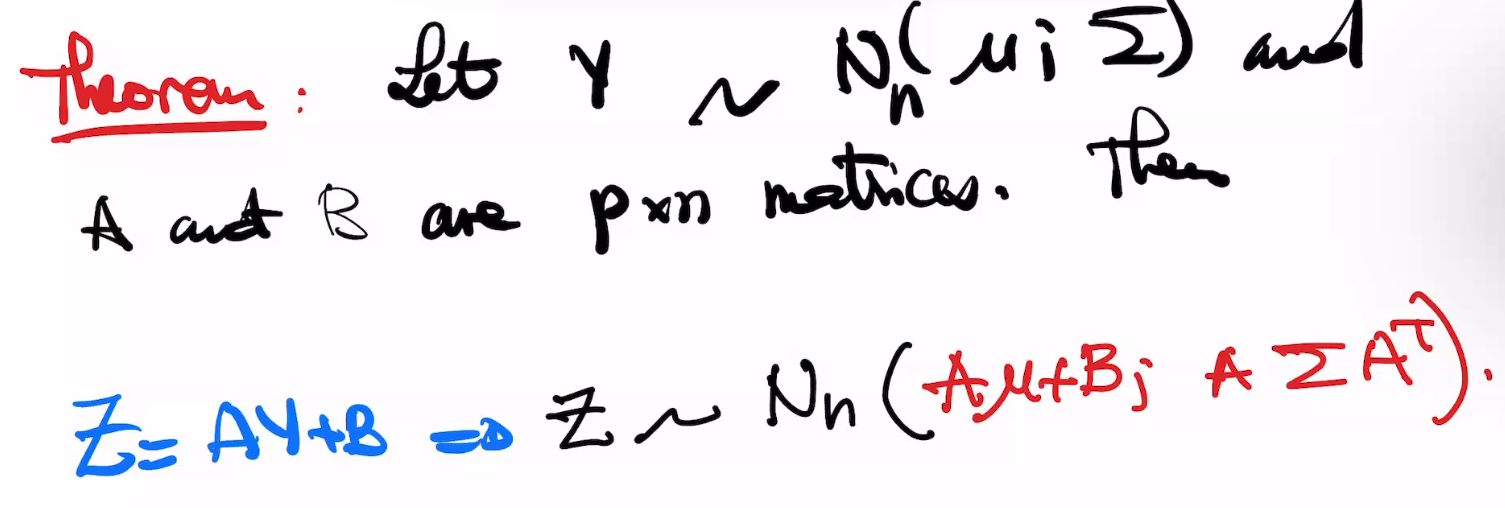 Theorem: Let Y ~ Nₙ(μ; Σ) and
A and B are p×n matrices. Then
Z = AY+B ⇒ Z ~ Nₙ(Aμ+B; A Σ Aᵀ).